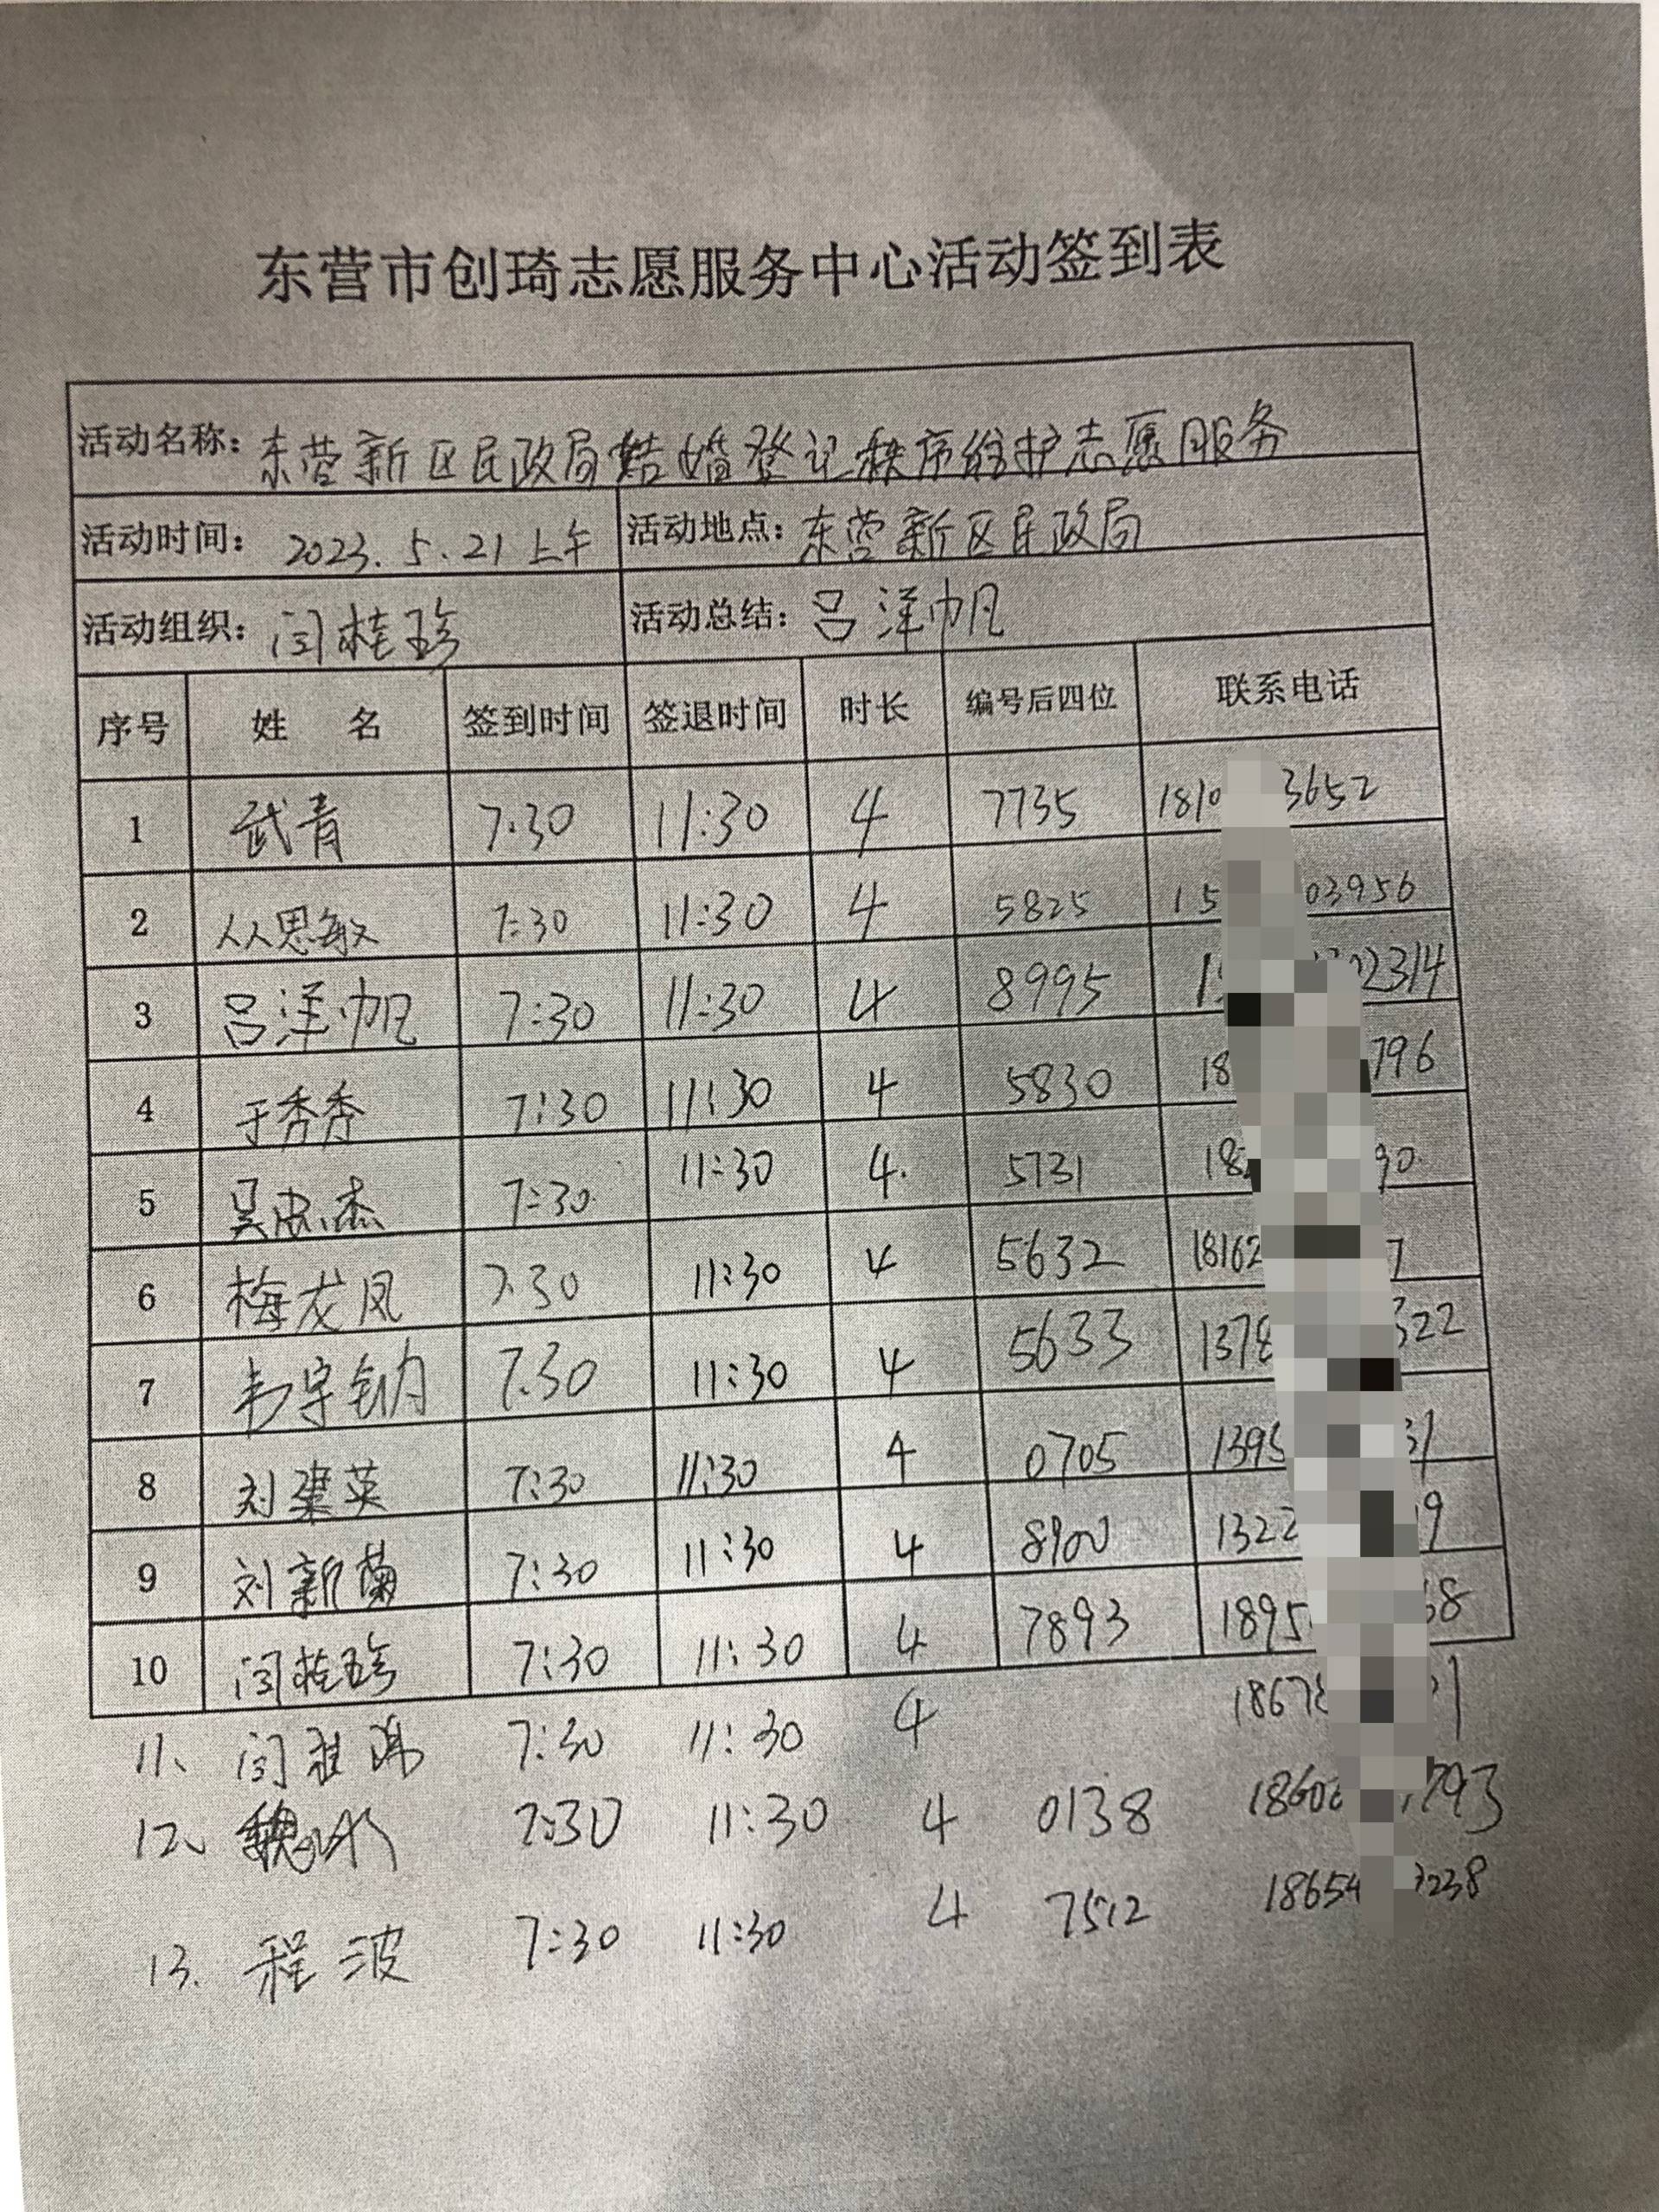 东营市创琦志愿服务中心活动签到表
活动名称：东营新区民政局结婚登记秩序维护志愿服务
活动时间：2023.5.21上午 活动地点：东营新区民政局
活动组织：闫桂珍 活动总结：吕洋帆
序号 姓 名 签到时间 签退时间 时长 编号后四位 联系电话
1 武青 7:30 11:30 4 7735 1810 3652
2 从思敏 7:30 11:30 4 5825 15 03956
3 吕洋帆 7:30 11:30 4 8995 1 02314
4 于秀秀 7:30 11:30 4 5830 18 796
5 吴忠杰 7:30 11:30 4. 5731 18 90.
6 梅龙凤 7:30 11:30 4 5632 18162 7
7 韦宇钠 7:30 11:30 4 5633 1378 322
8 刘梁英 7:30 11:30 4 0705 1395 31
9 刘新菊 7:30 11:30 4 8900 1322 19
10 闫桂珍 7:30 11:30 4 7893 1895 68
11、闫 7:30 11:30 4 1867 1
12、魏 7:30 11:30 4 0138 1860 793
13. 程波 7:30 11:30 4 7512 18654 238